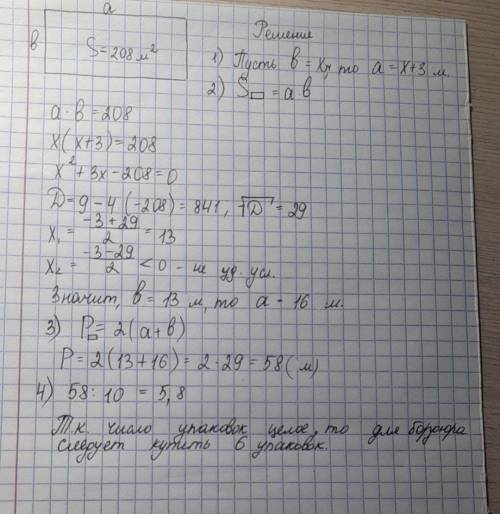 a
в
S = 208 м²
Решение
1) Пусть в = x, то a = x+3 м.
2) S▭ = a в
a · в = 208
x(x+3) = 208
x² + 3x - 208 = 0
D = 9 - 4 · (-208) = 841, √D = 29
x₁ = (-3+29)/2 = 13
x₂ = (-3-29)/2 < 0 - не уд. усл.
Значит, в = 13 м, то a - 16 м.
3) P▭ = 2(a+в)
P = 2(13+16) = 2·29 = 58(м)
4) 58 : 10 = 5,8
Т.к. число упаковок целое, то для бордюра
следует купить 6 упаковок.